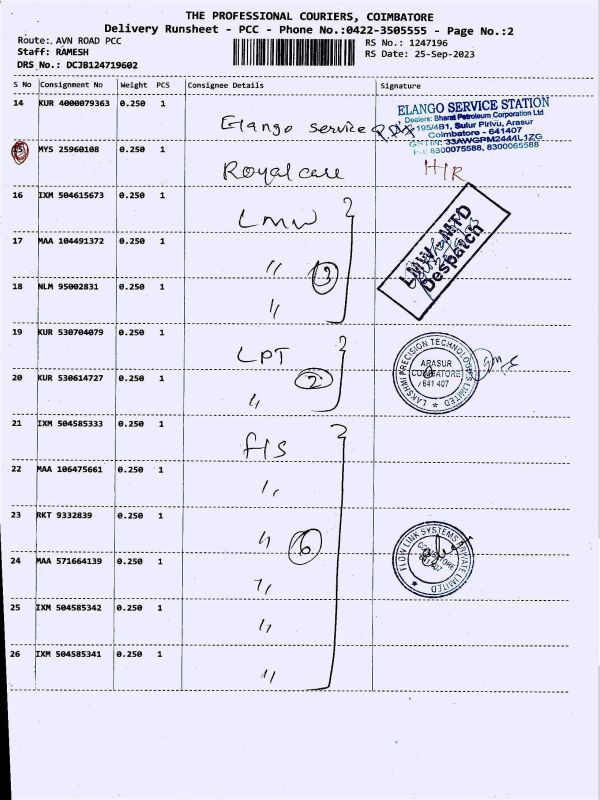 THE PROFESSIONAL COURIERS, COIMBATORE
Delivery Runsheet - PCC - Phone No.:0422-3505555 - Page No.:2
Route:. AVN ROAD PCC
RS No.: 1247196
Staff: RAMESH
RS Date: 25-Sep-2023
DRS No.: DCJB124719602
S No Consignment No Weight PCS Consignee Details Signature
14 KUR 4000079363 0.250 1
Elango service
ELANGO SERVICE STATION
Dealers: Bharat Petroleum Corporation Ltd
195/4B1, Sulur Pirivu, Arasur
Coimbatore - 641407
GSTIN: 33AWGPM2444L1ZG
8300075588, 8300065588
15 MYS 25960108 0.250 1
Royal care
HIR
16 IXM 504615673 0.250 1
LMW
LMW - MTD
Despatch
17 MAA 104491372 0.250 1
" 3
18 NLM 95002831 0.250 1
"
19 KUR 530704079 0.250 1
LPT
LAKSHMI PRECISION TECHNOLOGIES LIMITED
ARASUR
COIMBATORE
641 407
20 KUR 530614727 0.250 1
2
"
21 IXM 504585333 0.250 1
fls
22 MAA 106475661 0.250 1
"
23 RKT 9332839 0.250 1
" 6
FLOW LINK SYSTEMS PRIVATE LIMITED
COIMBATORE
641407
24 MAA 571664139 0.250 1
"
25 IXM 504585342 0.250 1
"
26 IXM 504585341 0.250 1
"